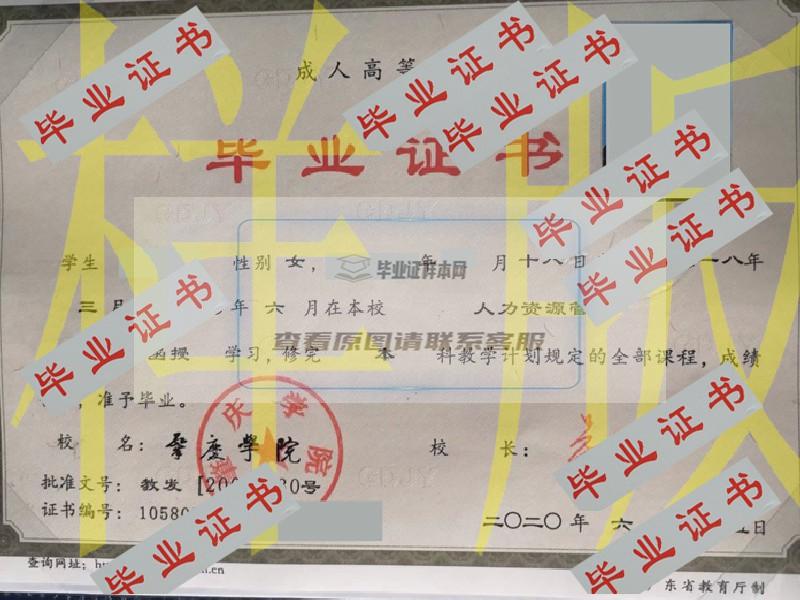 成人高等
毕业证书
毕业证书
毕业证书
毕业证书
毕业证书
毕业证书
样版
学生 性别 女, 年 月十八日 一八年
毕业证样本网
三月 年 六 月在本校 人力资源管
毕业证书
查看原图请联系客服
函授 学习,修完 本 科教学计划规定的全部课程,成绩
,准予毕业。
校 名: 肇庆学院
校 长:
肇庆学院
毕业证书
批准文号: 教发[200 80号
证书编号: 10580
二〇二〇年 六 日
毕业证书
毕业证书
查询网址:
.cn
东省教育厅制